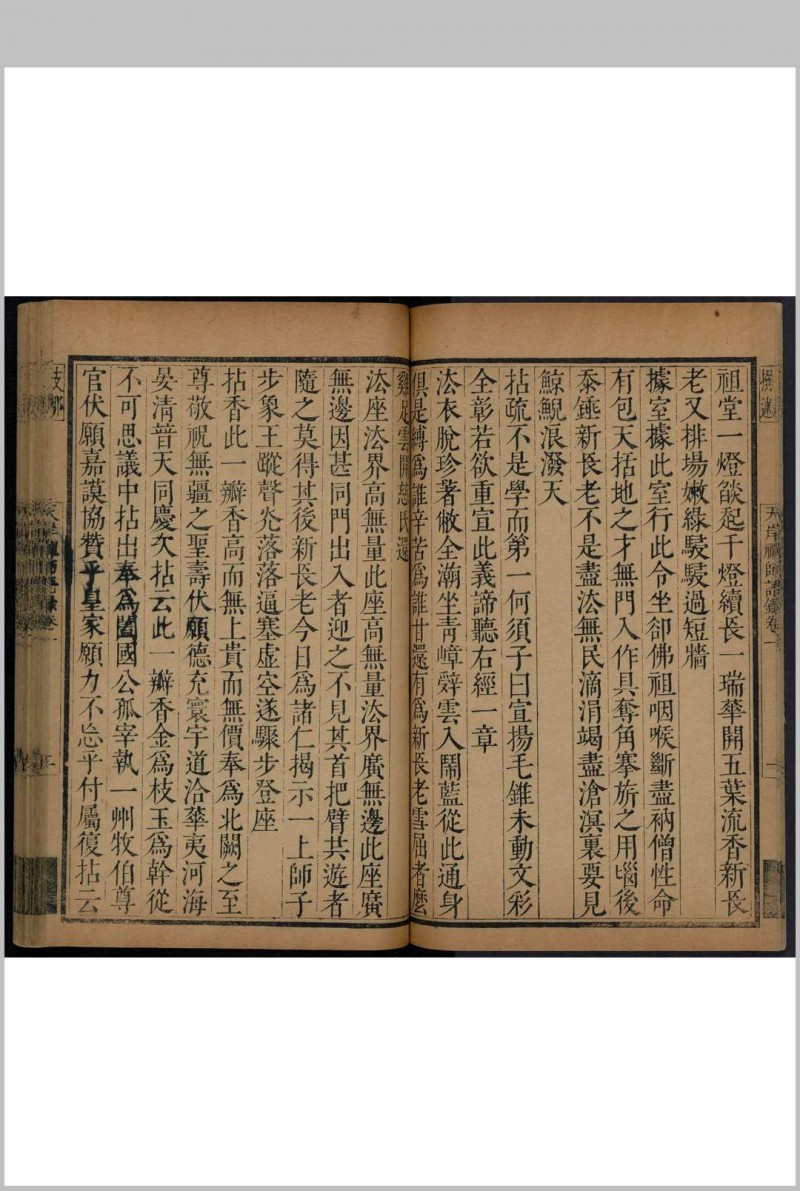 撰述
天岸禪師語錄卷一
一
祖堂一燈燄起千燈續長一瑞華開五葉流香新長
老又排場嫩綠駸駸過短牆
據室據此室行此令坐卻佛祖咽喉斷盡衲僧性命
有包天括地之才無門入作具奪角搴旂之用惱後
泰錘新長老不是盡法無民滴涓竭盡滄溟裏要見
鯨鯢浪潑天
拈疏不是學而第一何須子曰宣揚毛錐未動文彩
全彰若欲重宣此義諦聽右經一章
法衣脫珍著敝全瀚坐靑嶂辭雲入鬧藍從此通身
俱是縛為誰辛苦為誰甘還有為新長老雪屈者麼
雞足雲開慈氏還
法座法界高無量此座高無量法界廣無邊此座廣
無邊因甚同門出入者迎之不見其首把臂共遊者
隨之莫得其後新長老今日為諸仁揭示一上師子
步象王蹤聲光落落逼塞虛空遂驟步登座
拈香此一瓣香高而無上貴而無價奉為北闕之至
尊敬祝無疆之聖壽伏願德充寰宇道洽華夷河海
晏清普天同慶次拈云此一瓣香金為枝玉為幹從
不可思議中拈出奉為闔國公孤宰執一州牧伯尊
官伏願嘉謨協贊乎皇家願力不忘乎付屬復拈云
支那